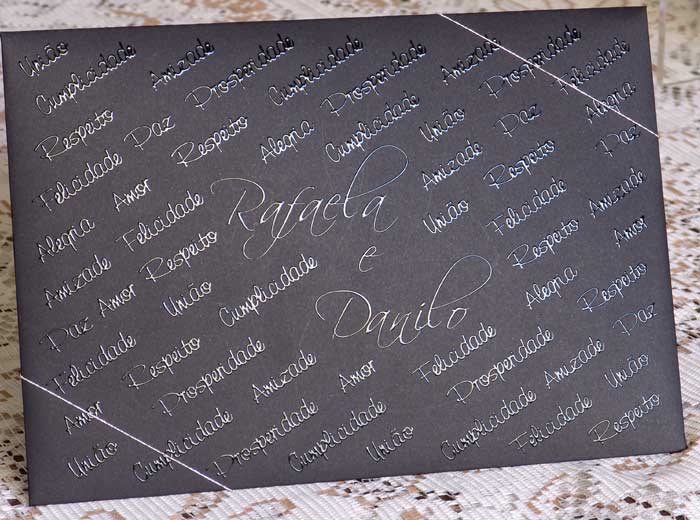 União
Cumplicidade Amizade Prosperidade Cumplicidade Prosperidade Amizade Prosperidade Felicidade
Respeito Paz Respeito Alegria Cumplicidade União Paz Alegria
Felicidade Amor Amizade Respeito Paz
Rafaela
e
Danilo
Alegria Felicidade União Felicidade Amizade
Amizade Respeito Respeito Amor
Paz Amor União Cumplicidade Alegria Respeito
Felicidade Respeito Prosperidade Amizade Amor Felicidade Prosperidade Amizade Paz
Amor Cumplicidade Prosperidade Cumplicidade União Cumplicidade Felicidade União
União Respeito